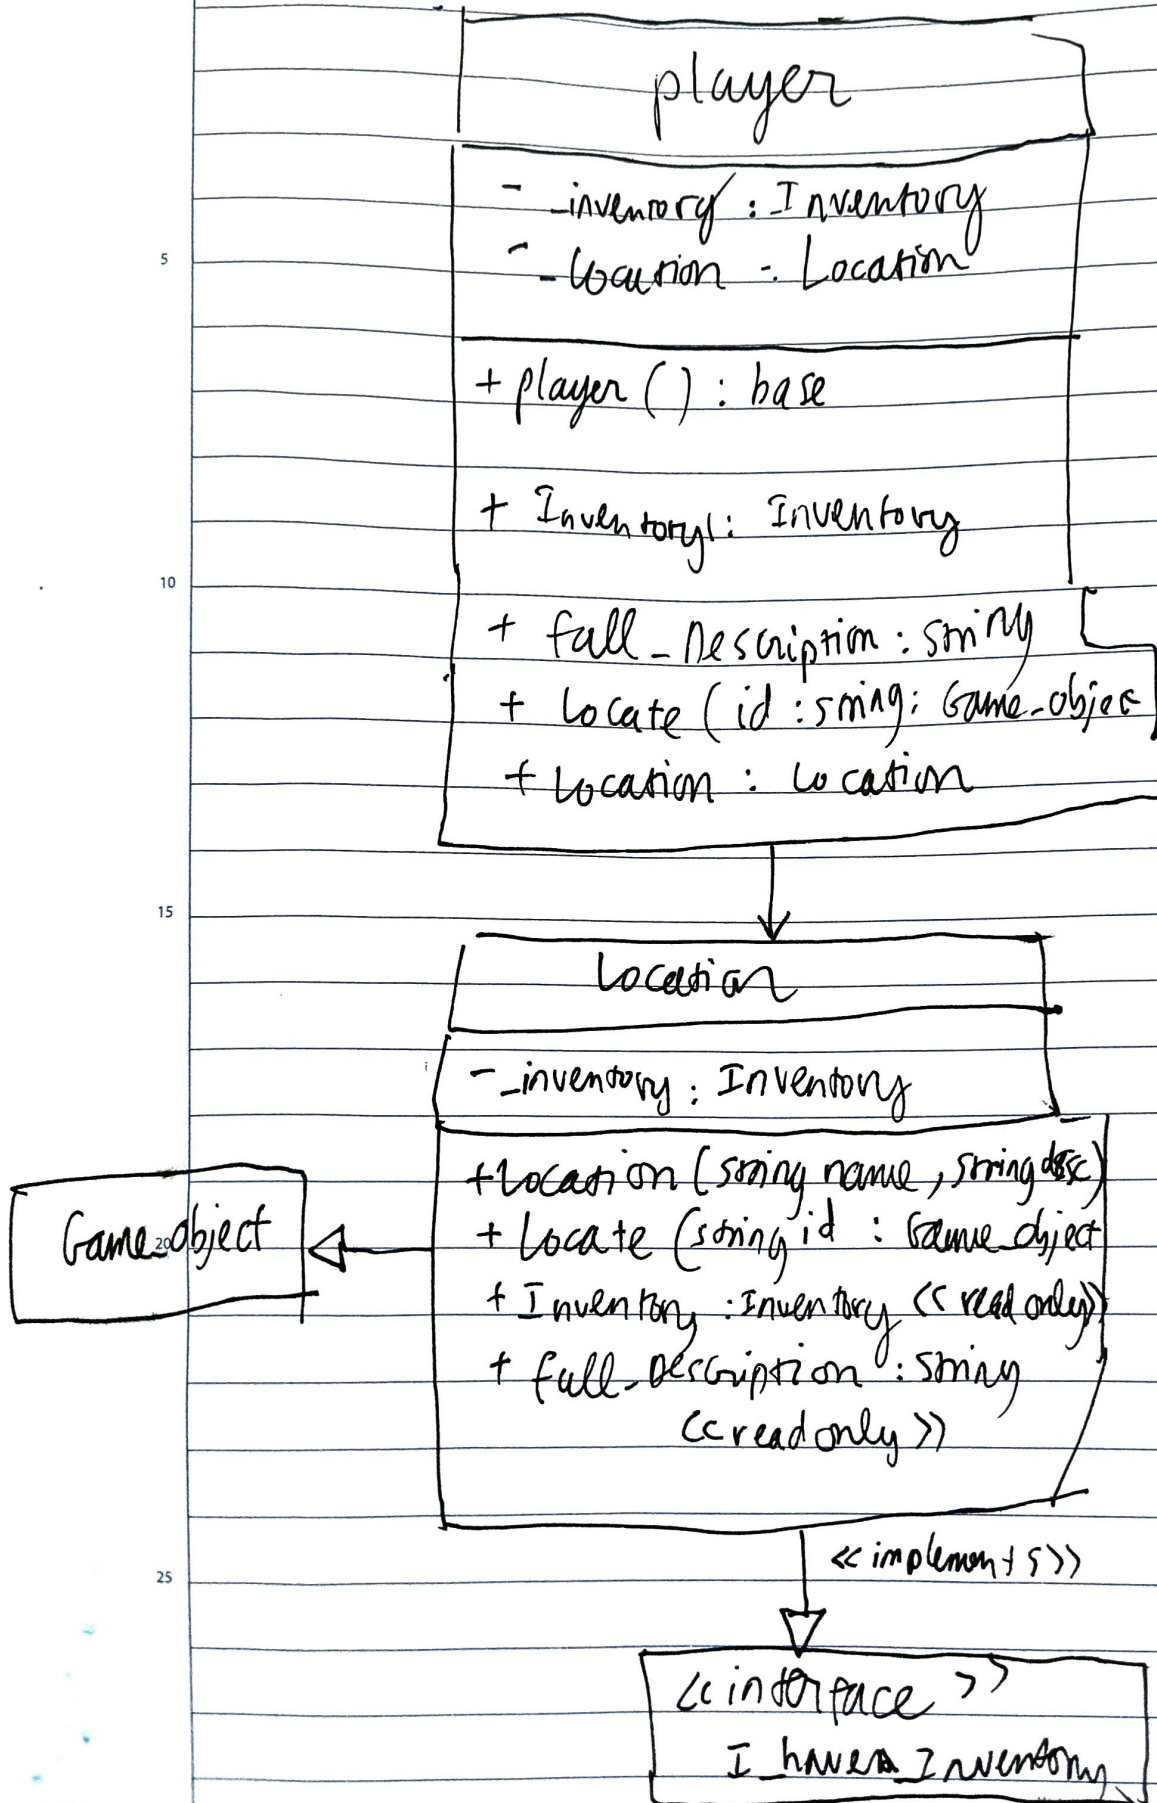 player
- _inventory : Inventory
- _location : Location
5
+ player () : base
+ Inventory : Inventory
10
+ full_Description : string
+ locate (id : string : Game_object
+ location : location
15
location
- _inventory : Inventory
+ location (string name , string desc)
Game_object
20
+ locate (string id : Game_object
+ Inventory : Inventory << read only >>
+ full_Description : string
<< read only >>
<< implements >>
25
<< interface >>
I_havea_Inventory